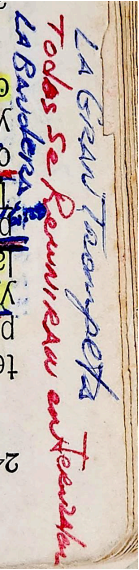 LA GRAN Trompeta
Todos Se ReuniRAN en Jerusalen
LA BANDERA